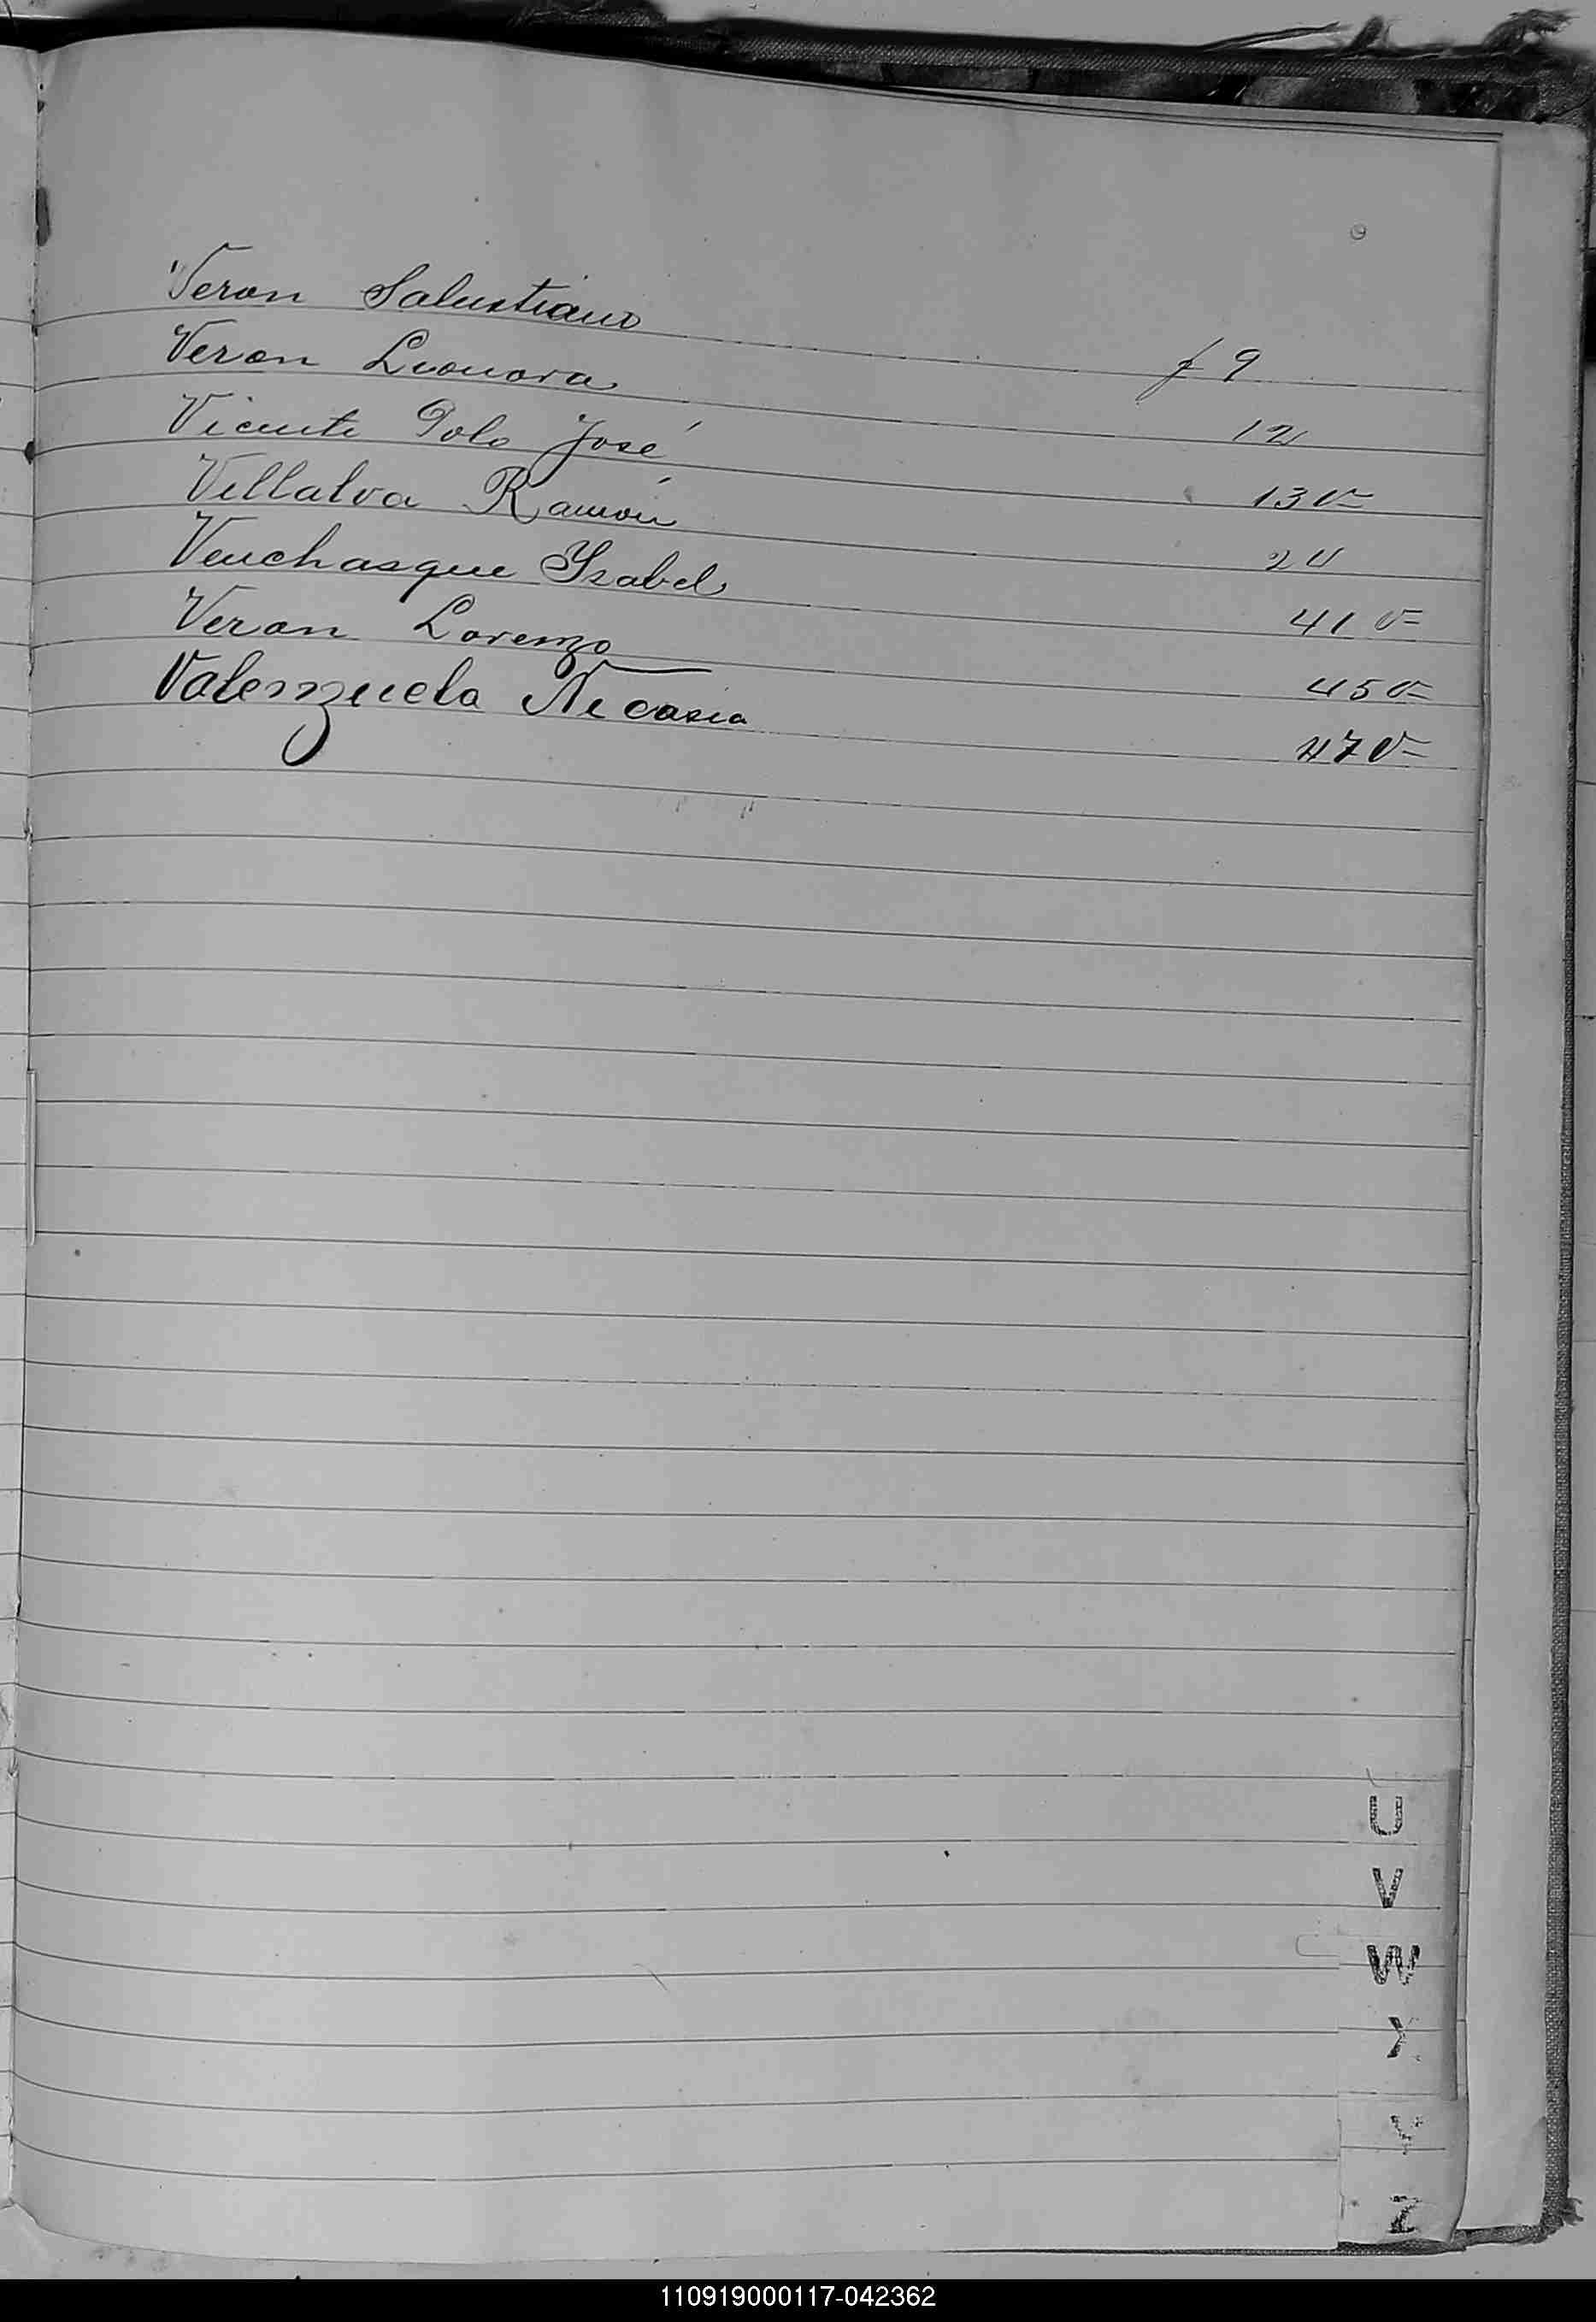 Veron Salustiano f 9
Veron Leonora 12
Vicente Polo José 13 v=
Villalva Ramón 24
Venchasque Ysabel 41 v=
Veron Lorenzo 45 v=
Valenzuela Nicasia 47 v=
U
V
W
X
Y
Z
110919000117-042362